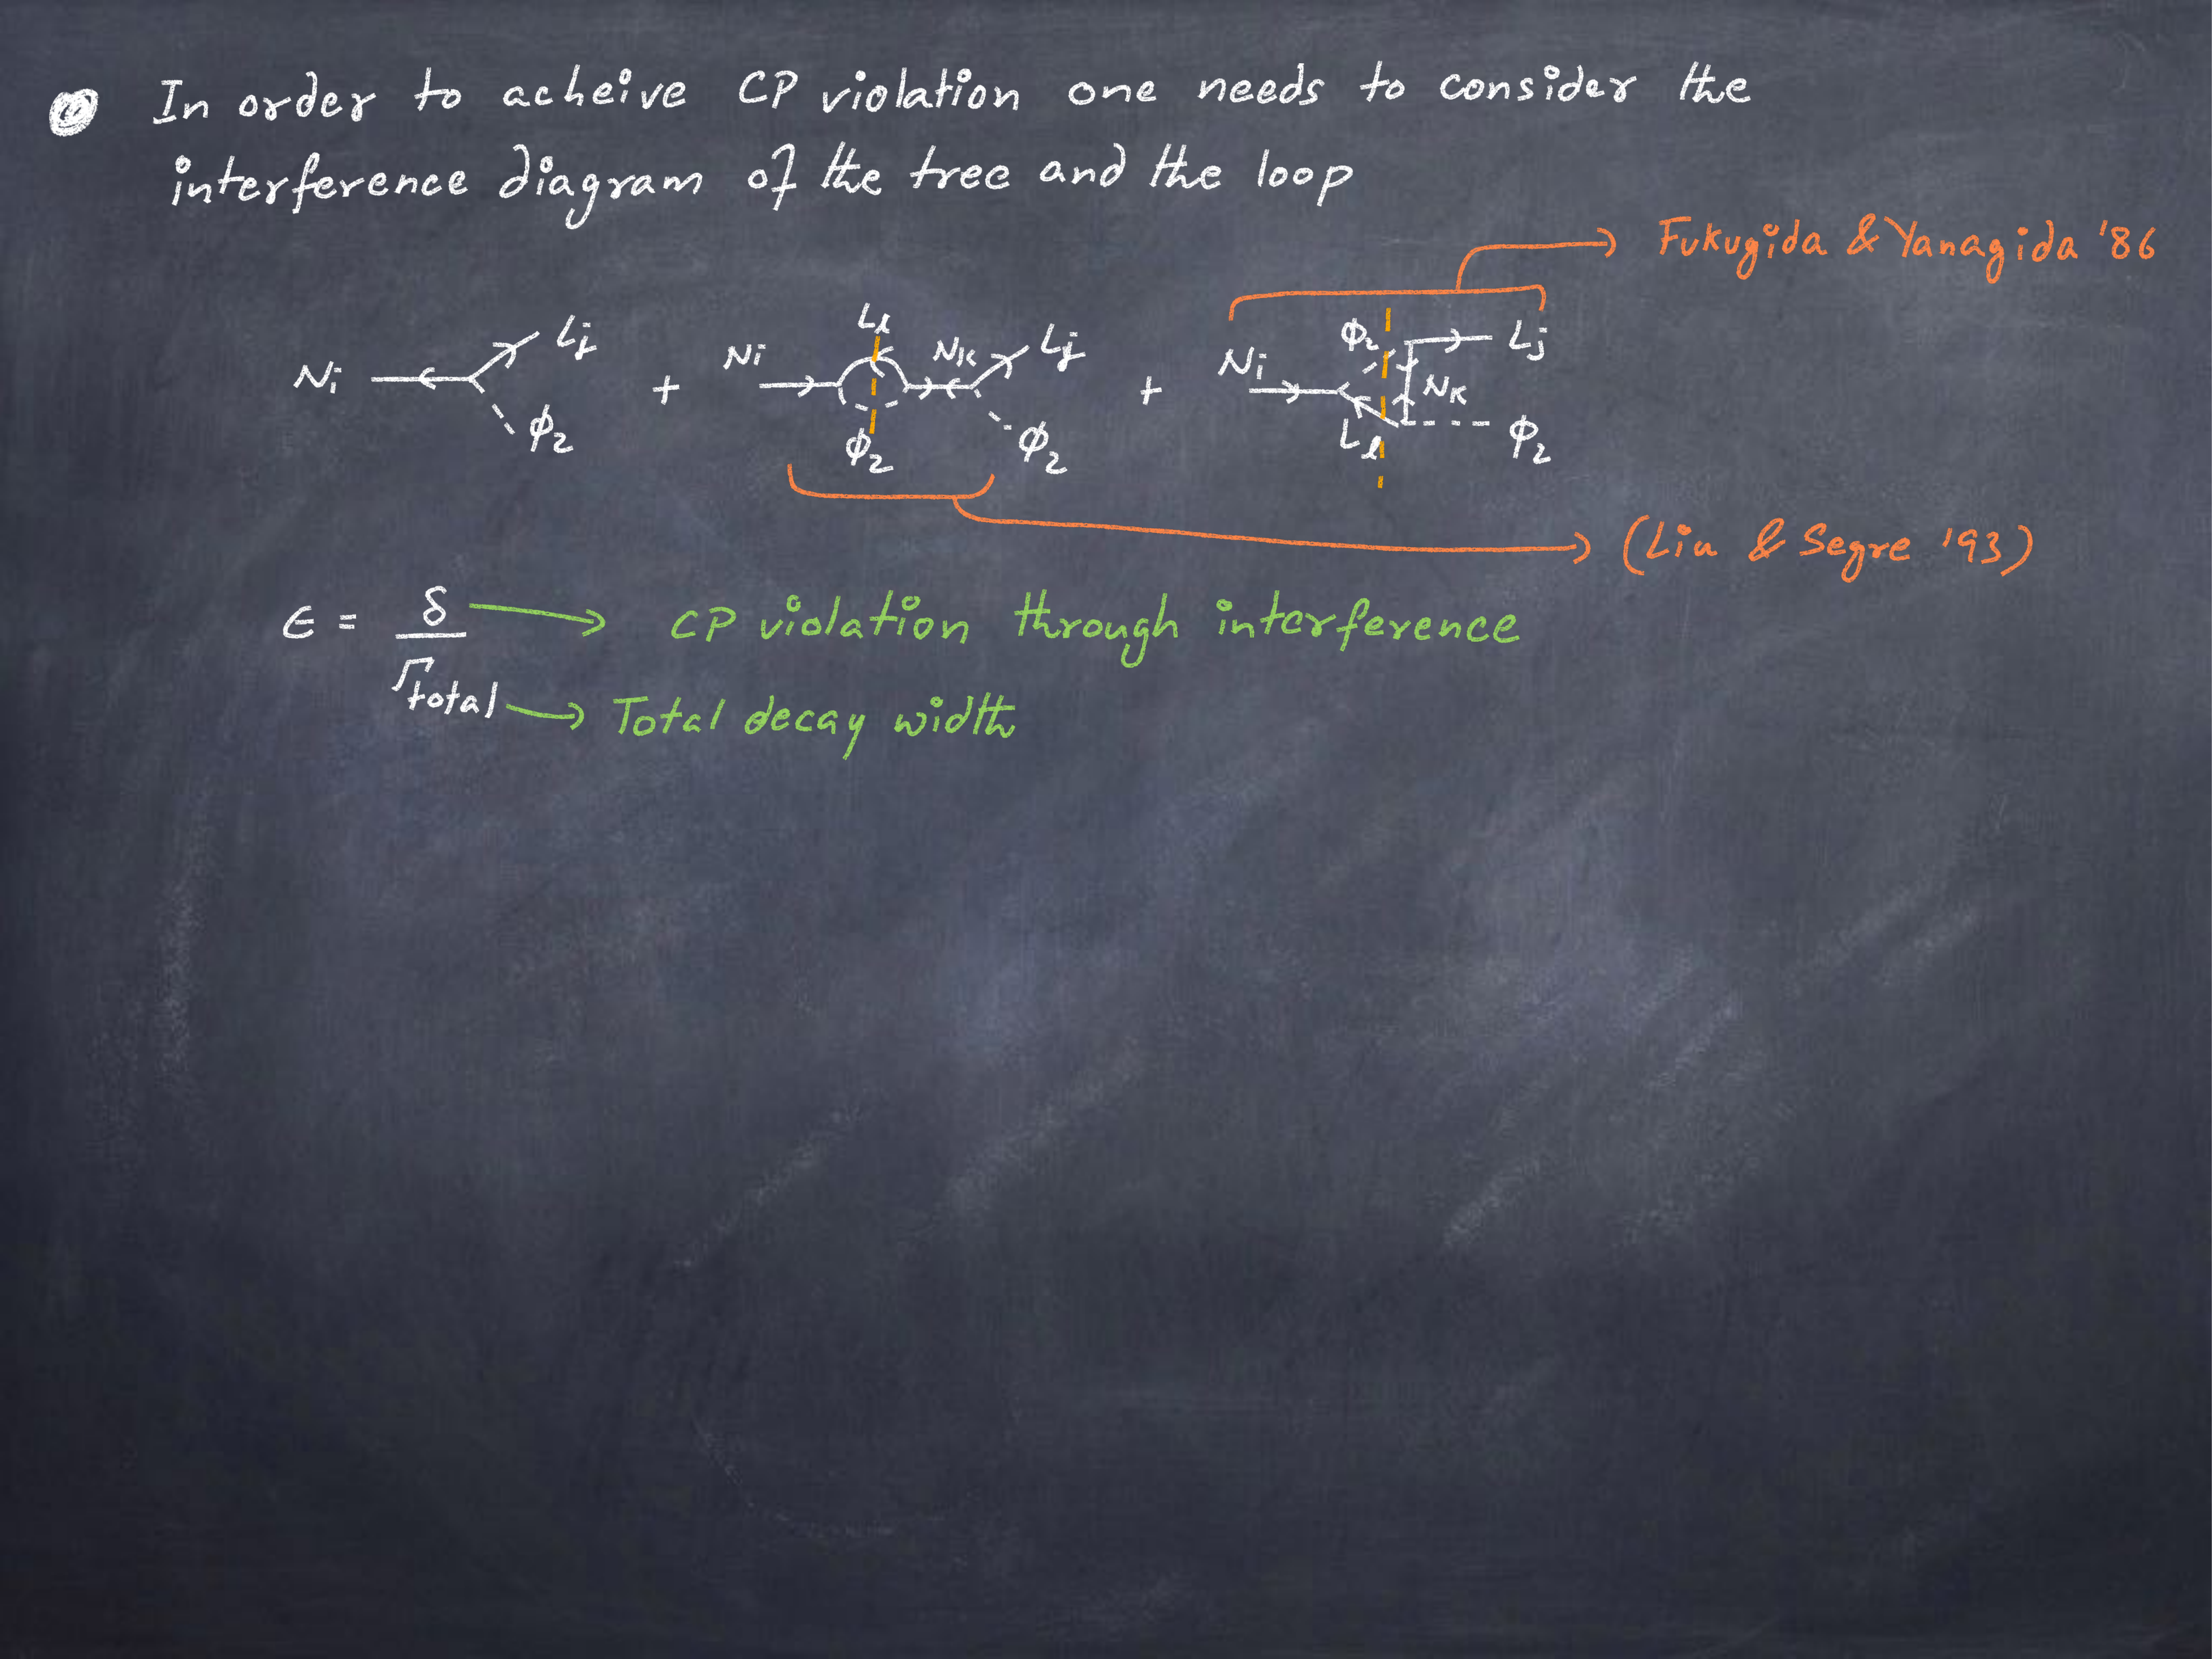 In order to acheive CP violation one needs to consider the
interference diagram of the tree and the loop
Fukugida & Yanagida '86
Ni Lj ϕ2 + Ni Ll ϕ2 NK Lj ϕ2 + Ni ϕ2 Ll NK Lj ϕ2
(Liu & Segre '93)
ϵ = δ / Γtotal
CP violation through interference
Total decay width